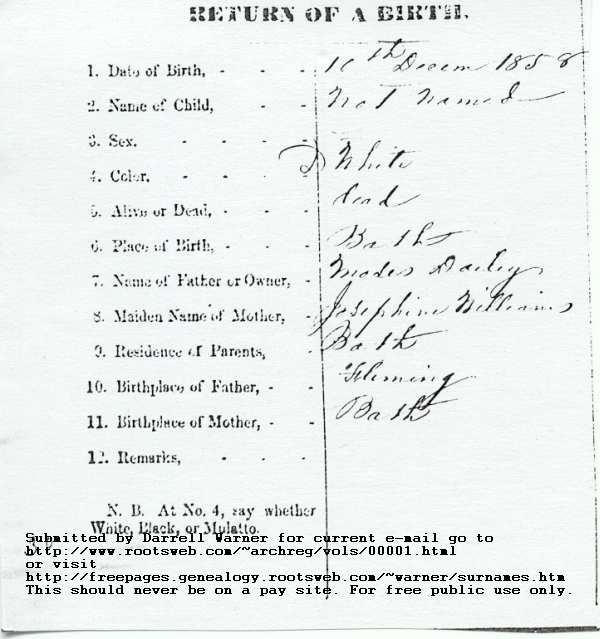 RETURN OF A BIRTH.
1. Date of Birth, - - - 10th Decem 1858
2. Name of Child, - - Not Named
3. Sex. - - - -
4. Color, - - - - White
5. Alive or Dead, - - - dead
6. Place of Birth, - - - Bath
7. Name of Father or Owner, - Dailey
8. Maiden Name of Mother, - Josephine Williams
9. Residence of Parents, - Bath
10. Birthplace of Father, - - Fleming
11. Birthplace of Mother, - - Bath
12. Remarks, - - -
N. B. At No. 4, say whether
White, Black, or Mulatto.
Submitted by Darrell Warner for current e-mail go to
http://www.rootsweb.com/~archreg/vols/00001.html
or visit
http://freepages.genealogy.rootsweb.com/~warner/surnames.htm
This should never be on a pay site. For free public use only.